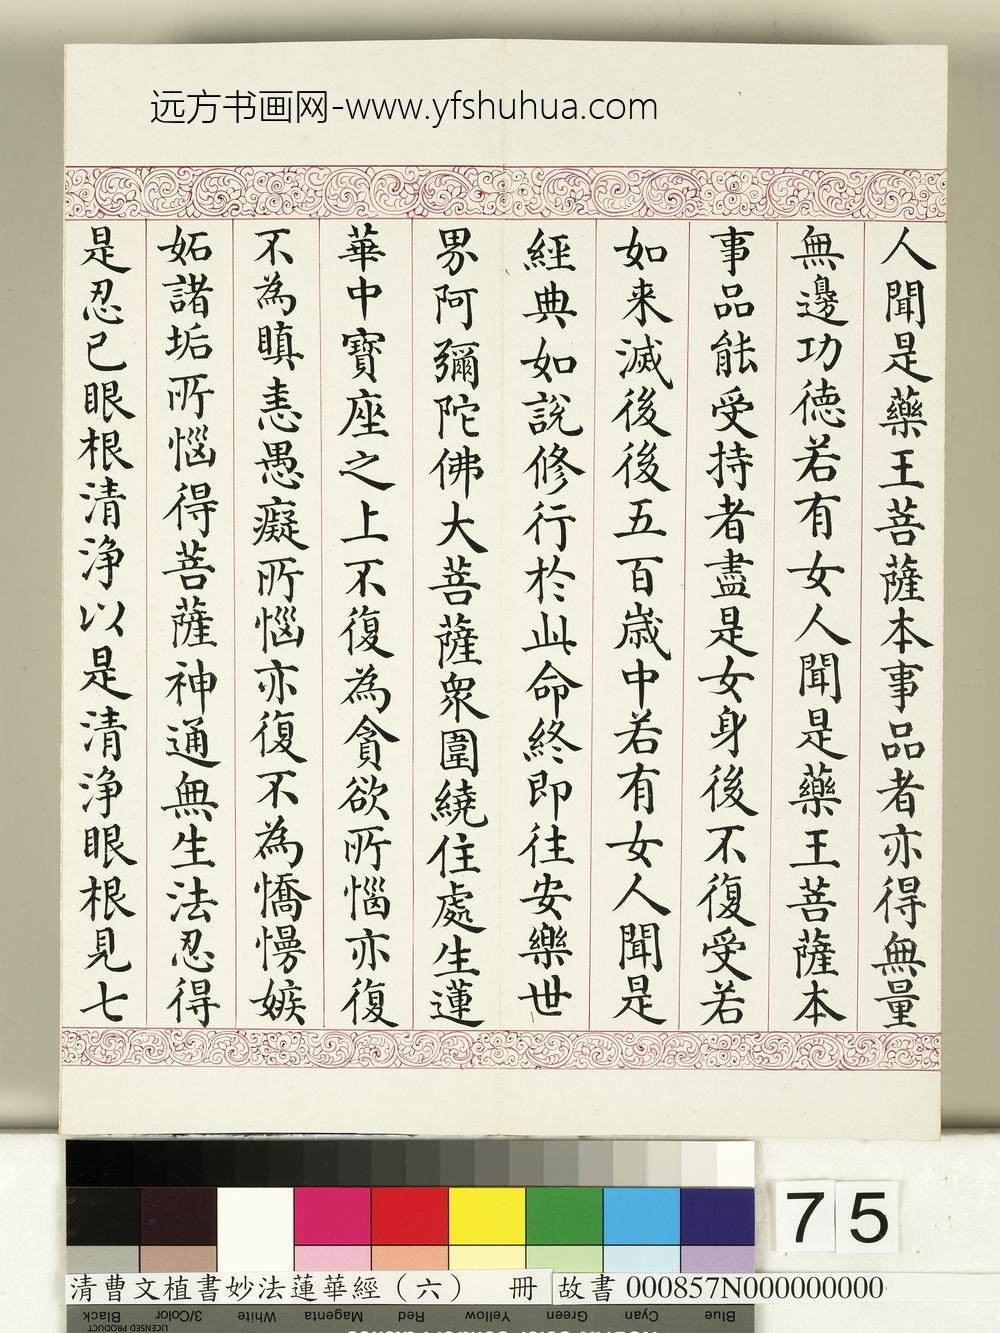 远方书画网-www.yfshuhua.com
人聞是藥王菩薩本事品者亦得無量
無邊功德若有女人聞是藥王菩薩本
事品能受持者盡是女身後不復受若
如来滅後後五百歲中若有女人聞是
經典如說修行於此命終即往安樂世
界阿彌陀佛大菩薩衆圍繞住處生蓮
華中寶座之上不復為貪欲所惱亦復
不為瞋恚愚癡所惱亦復不為憍慢嫉
妬諸垢所惱得菩薩神通無生法忍得
是忍已眼根清淨以是清淨眼根見七
75
清曹文植書妙法蓮華經（六） 冊 故書 000857N000000000
Black 3/Color White Magenta Red Yellow Green Cyan Blue
LICENSED PRODUCT